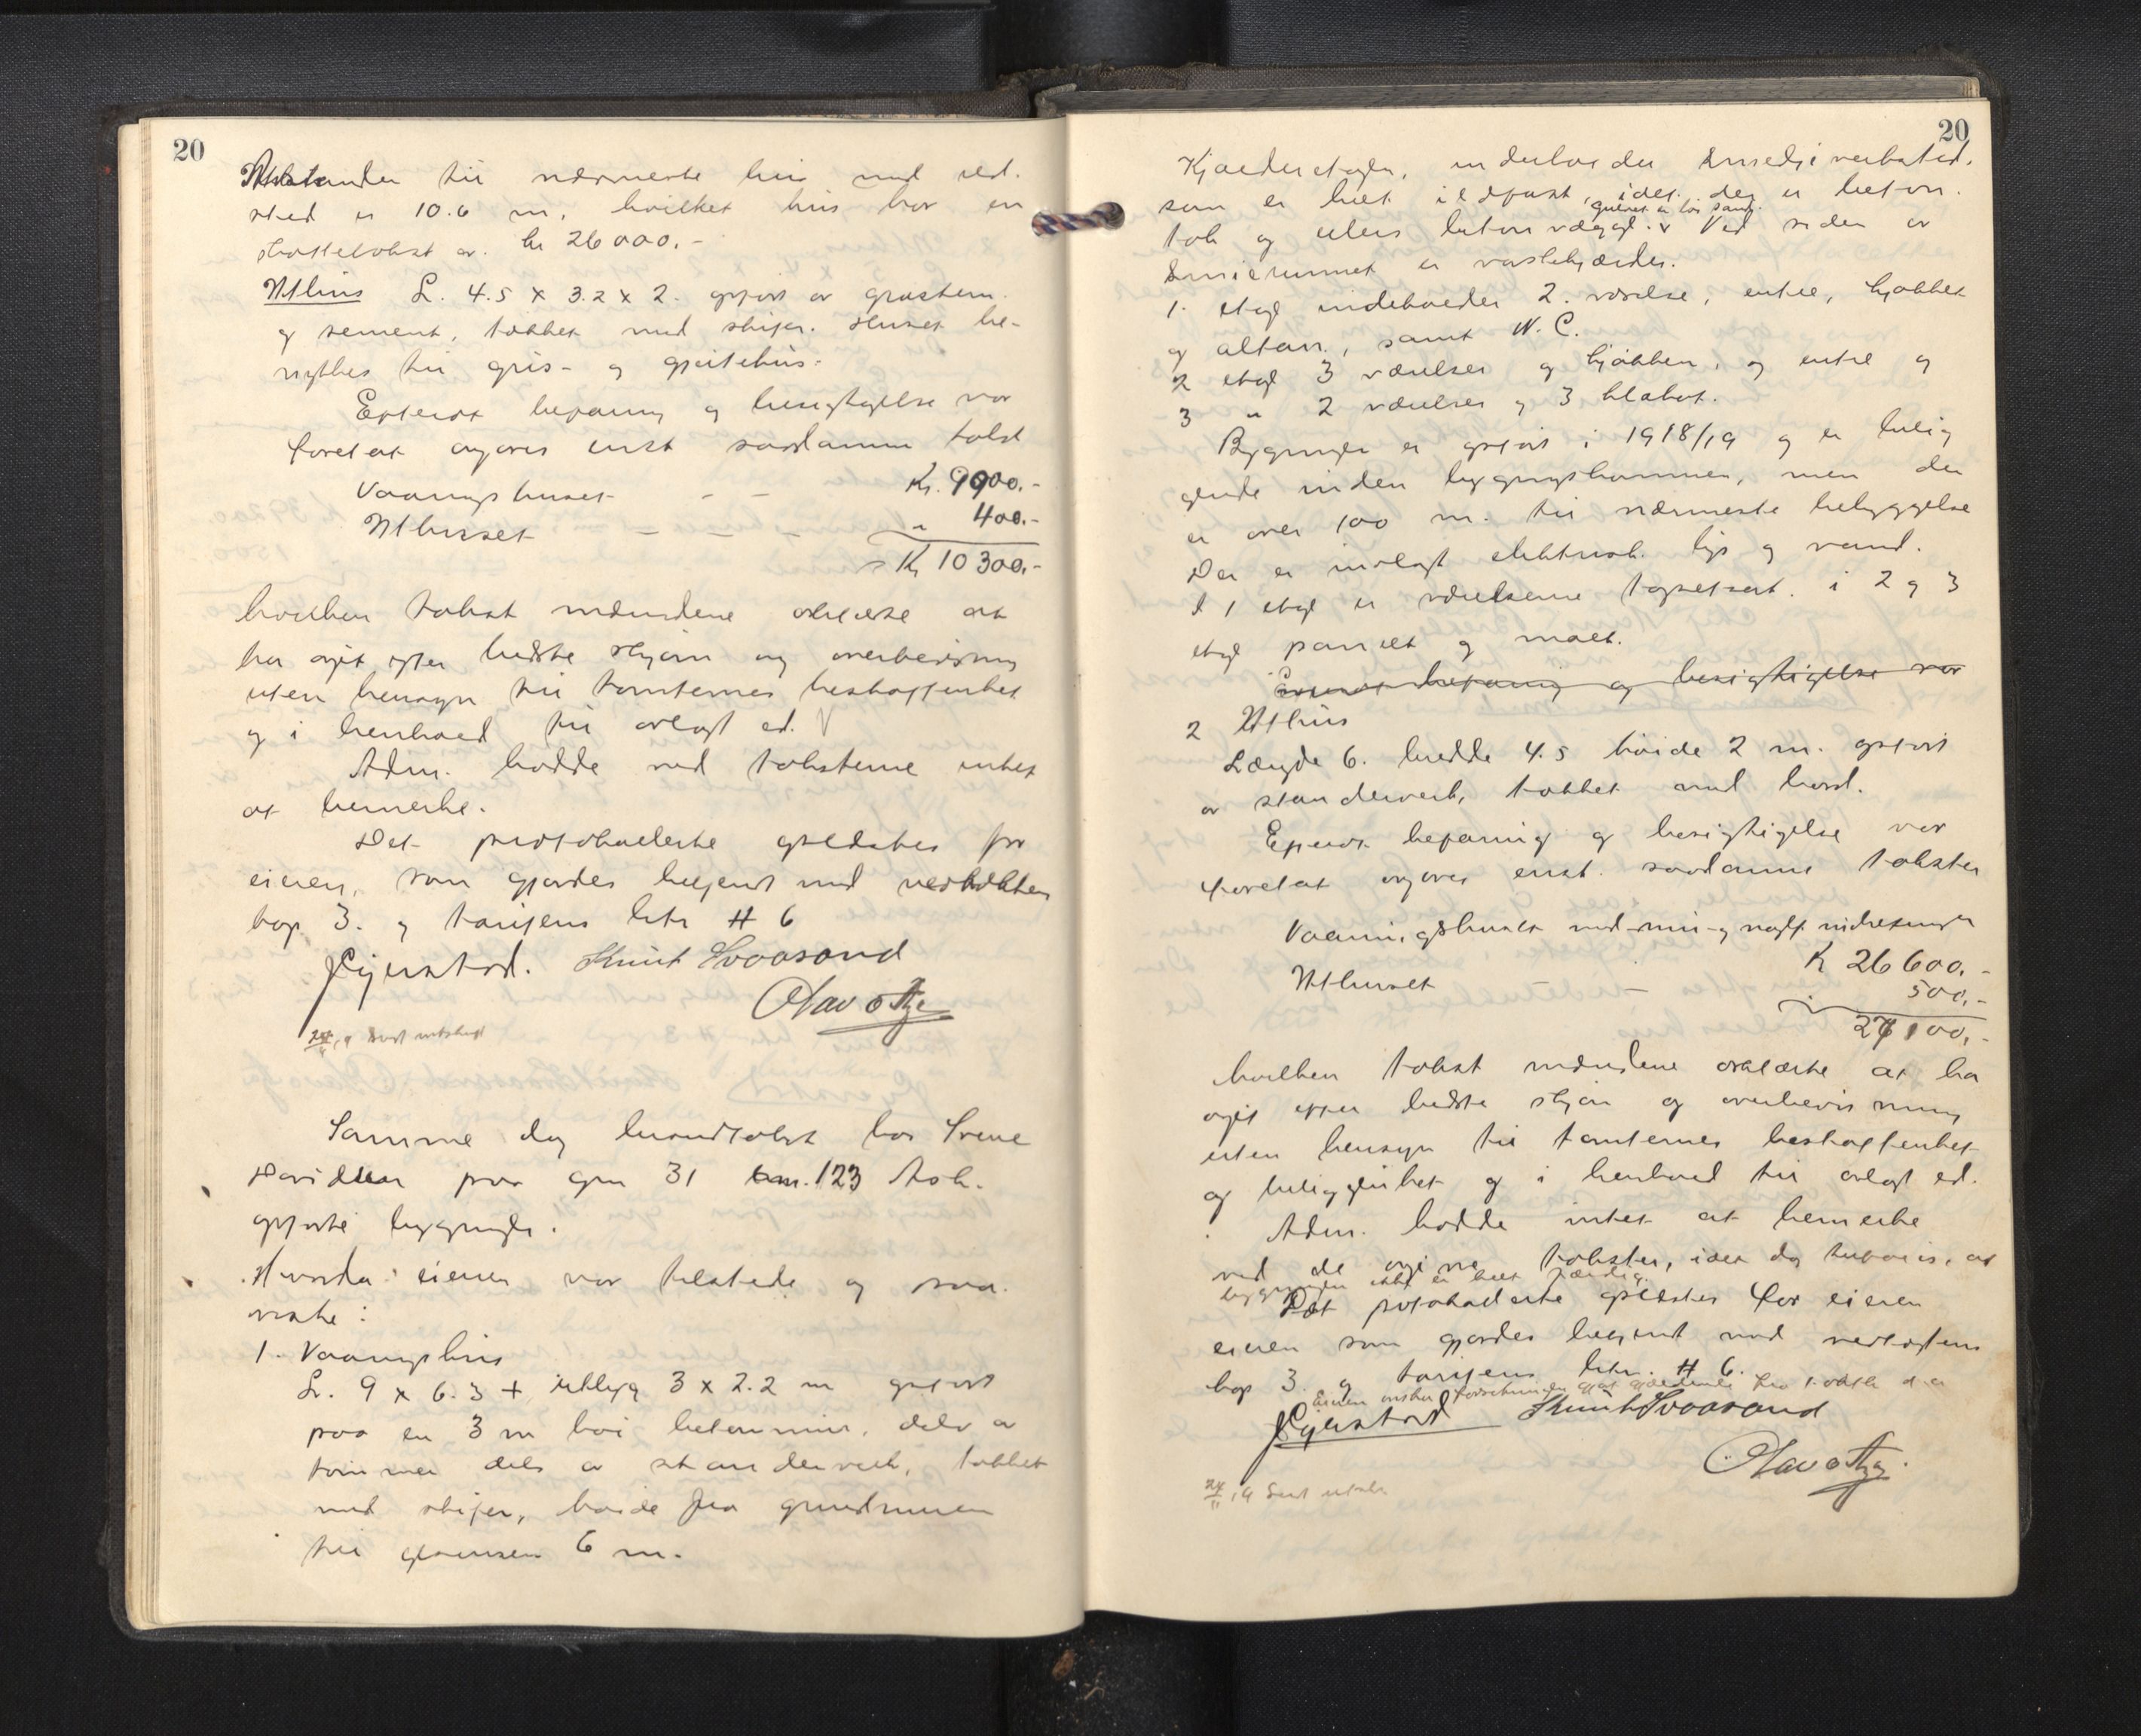 20
Avstanden til nærmeste hus med ild-
sted er 10.6 m, hvilket hus har en
skattetakst av kr 26000.-
Uthus L. 4.5 x 3.2 x 2. opført av graastein
og sement, tækket med skifer. Huset be-
nyttes til gris- og gjeitehus.
Efterat befaring og besigtigelse var
foretat avgaves enst. saadanne takst
Vaaningshuset - - Kr. 9900.-
Uthuset - - - - " 400.-
Kr 10300.-
hvilken takst mændene erklærte at
ha avgit efter bedste skjøn og overbevisning
uten hensyn til tomternes beskaffenhet
og i henhold til avlagt ed.
Adm. hadde ved taksterne intet
at bemerke.
Det protokollerte oplæstes for
eieren, som gjordes bekjent med vedtækten
kap 3. og tarifens litr H 6
Gjerstad. Knut Svaasand
Olav o Aga
24/11 19 Sendt utskrift
Samme dag brandtakst hos Svene
Davidsen paa gnr 31 bnr. 123 Ask.
opførte bygninger.
Hvorda: eieren var tilstede og paa-
viste:
1. Vaaningshus
L. 9 x 6.3 + utbygg 3 x 2.2 m opført
paa en 3 m høi betonmur, dels av
tømmer dels av stenderverk, tækket
med skifer, høide fra grundmuren
til gesimsen 6 m.
20
Kjælderetagen, indeholder Smedjeverksted,
som er helt ildfast, idet der er beton-
gulvet er løs sand.
tak og ellers beton vægge. v Ved siden av
Smierummet er vaskekjælder.
1. etage indeholder 2. værelse, entre, kjøkken
og altan, samt W. C.
2 etage 3 værelser og kjøkken, og entre og
3 " 2 værelser og 3 klekot.
Bygningen er opført i 1918/19 og er belig
gende inden bygningskommunen, men der
er over 100 m. til nærmeste bebyggelse
Der er indlagt elektrisk lys og vand.
I 1 etage er værelserne tapetsert. i 2 og 3
etage panelt og malt.
Efterat befaring og besigtigelse var
2 Uthus
Længde 6. bredde 4.5 høide 2 m. opført
av stenderverk, tækket med bord.
Efterat befaring og besigtigelse var
foretat avgaves enst. saadanne takster
Vaaningshuset med mur og nagf. indretninger
K 26600.-
Uthuset - 500.-
27100.-
hvilken takst mændene erklærte at ha
avgit efter bedste skjøn og overbevisning
uten hensyn til tomternes beskaffenhet
og beliggenhet og i henhold til avlagt ed.
Adm. hadde intet at bemerke
ved de avgivne takster, idet dog anføres, at
bygningen ikke er helt færdig.
Det protokollerte oplæstes for eieren
eieren som gjordes bekjent med vedtægtens
kap 3. og tarifens litr. H 6.
Eieren ønsker forsikringen gjort gjældende fra takst dag
Gjerstad Knut Svaasand
Olav o Aga.
24/11 19 Sendt utskr.